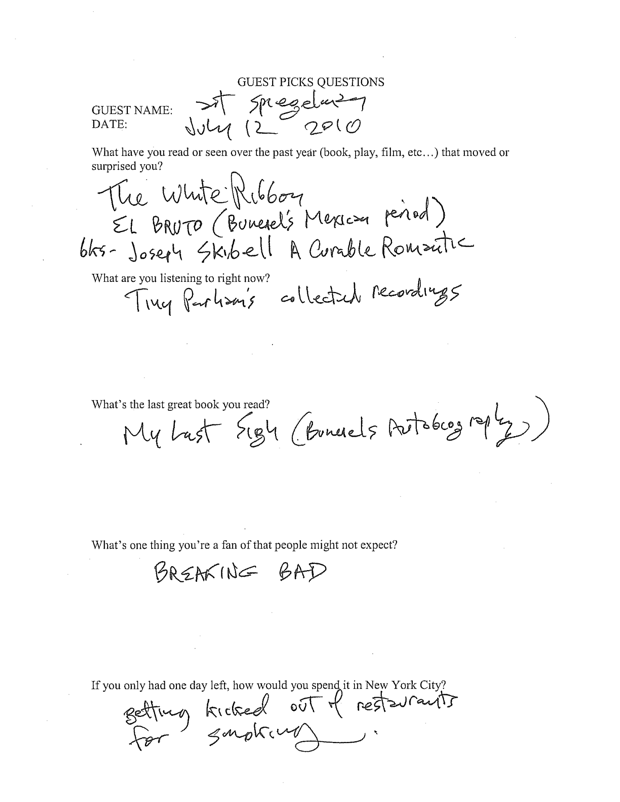 GUEST PICKS QUESTIONS
GUEST NAME: art spiegelman
DATE: July 12 2010
What have you read or seen over the past year (book, play, film, etc…) that moved or
surprised you?
The White Ribbon
EL BRUTO (Bunuel's Mexican period)
bks- Joseph Skibell A Curable Romantic
What are you listening to right now?
Tiny Parham's collected recordings
What's the last great book you read?
My Last Sigh (Bunuels Autobiography)
What's one thing you're a fan of that people might not expect?
BREAKING BAD
If you only had one day left, how would you spend it in New York City?
getting kicked out of restaurants
for smoking.